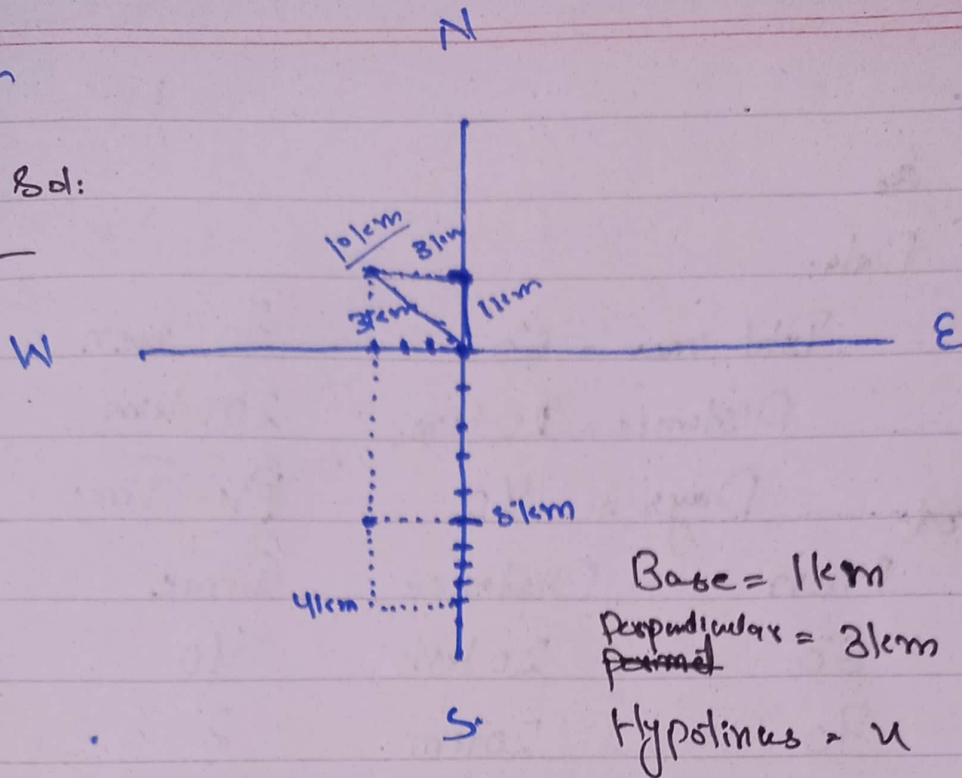 N
Sol:
10km
3km
1km
3km
W
E
5km
4km
Base = 1km
Perpendicular = 3km
S
Hypotinus = x